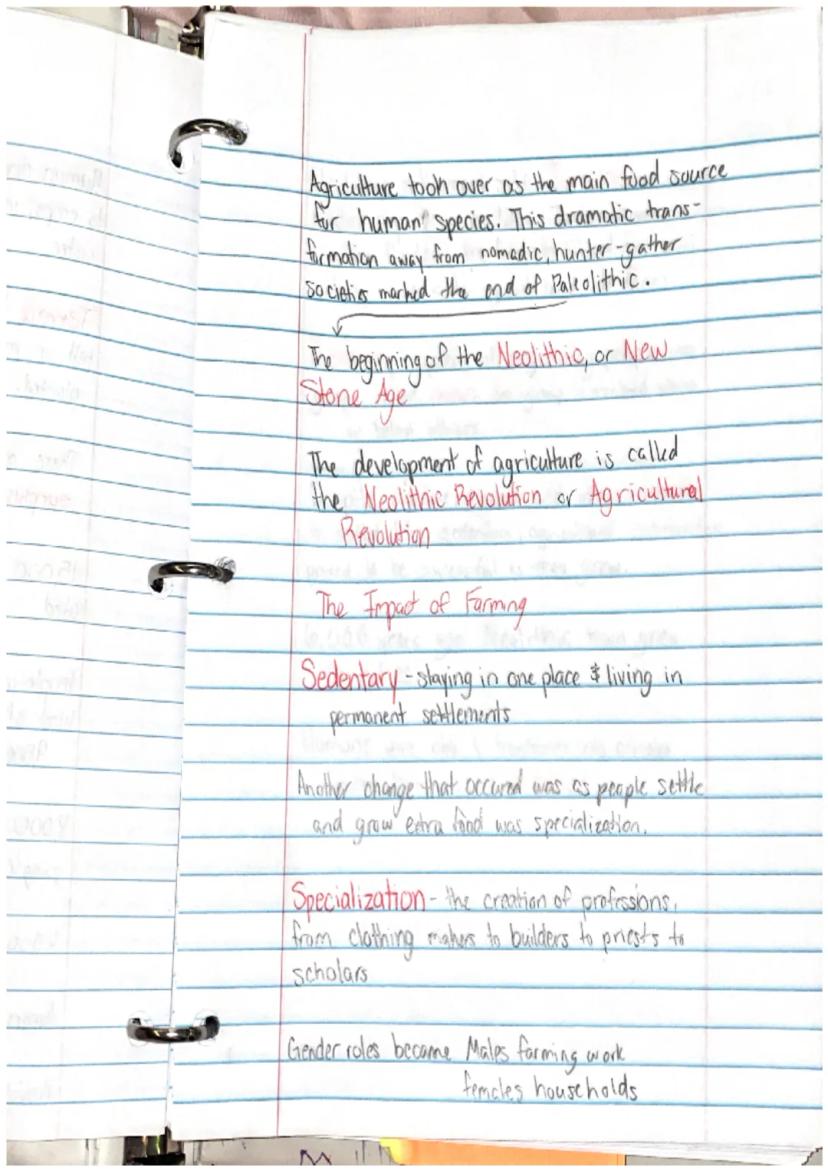 Agriculture took over as the main food source
for human species. This dramatic trans-
formation away from nomadic, hunter-gather
societies marked the end of Paleolithic.
The beginning of the Neolithic, or New
Stone Age
The development of agriculture is called
the Neolithic Revolution or Agricultural
Revolution
The Impact of Farming
Sedentary - staying in one place & living in
permanent settlements
Another change that occured was as people settle
and grow extra food was specialization.
Specialization - the creation of professions,
from clothing makers to builders to priests to
scholars
Gender roles became Males farming work
females households